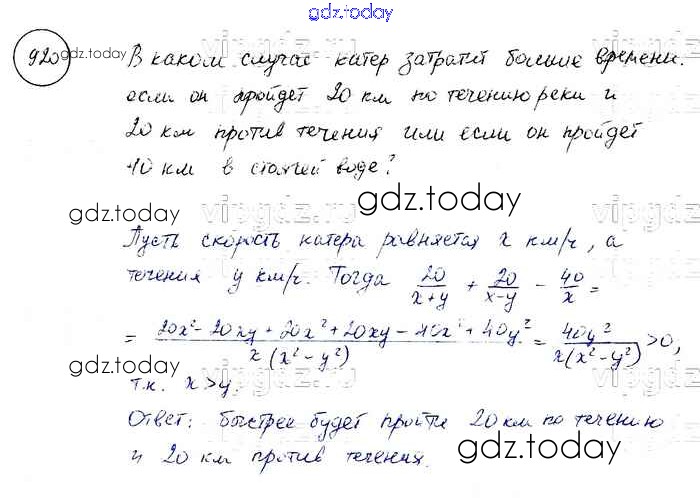 gdz.today
920 В каком случае катер затратит больше времени:
если он пройдет 20 км по течению реки и
20 км против течения или если он пройдет
40 км в стоячей воде?
gdz.today
gdz.today
Пусть скорость катера равняется x км/ч, а
течения y км/ч. Тогда 20/(x+y) + 20/(x-y) - 40/x =
= (20x² - 20xy + 20x² + 20xy - 40x² + 40y²)/(x(x² - y²)) = 40y²/(x(x² - y²)) > 0,
т.к. x > y.
Ответ: быстрее будет пройти 20 км по течению
и 20 км против течения.
gdz.today